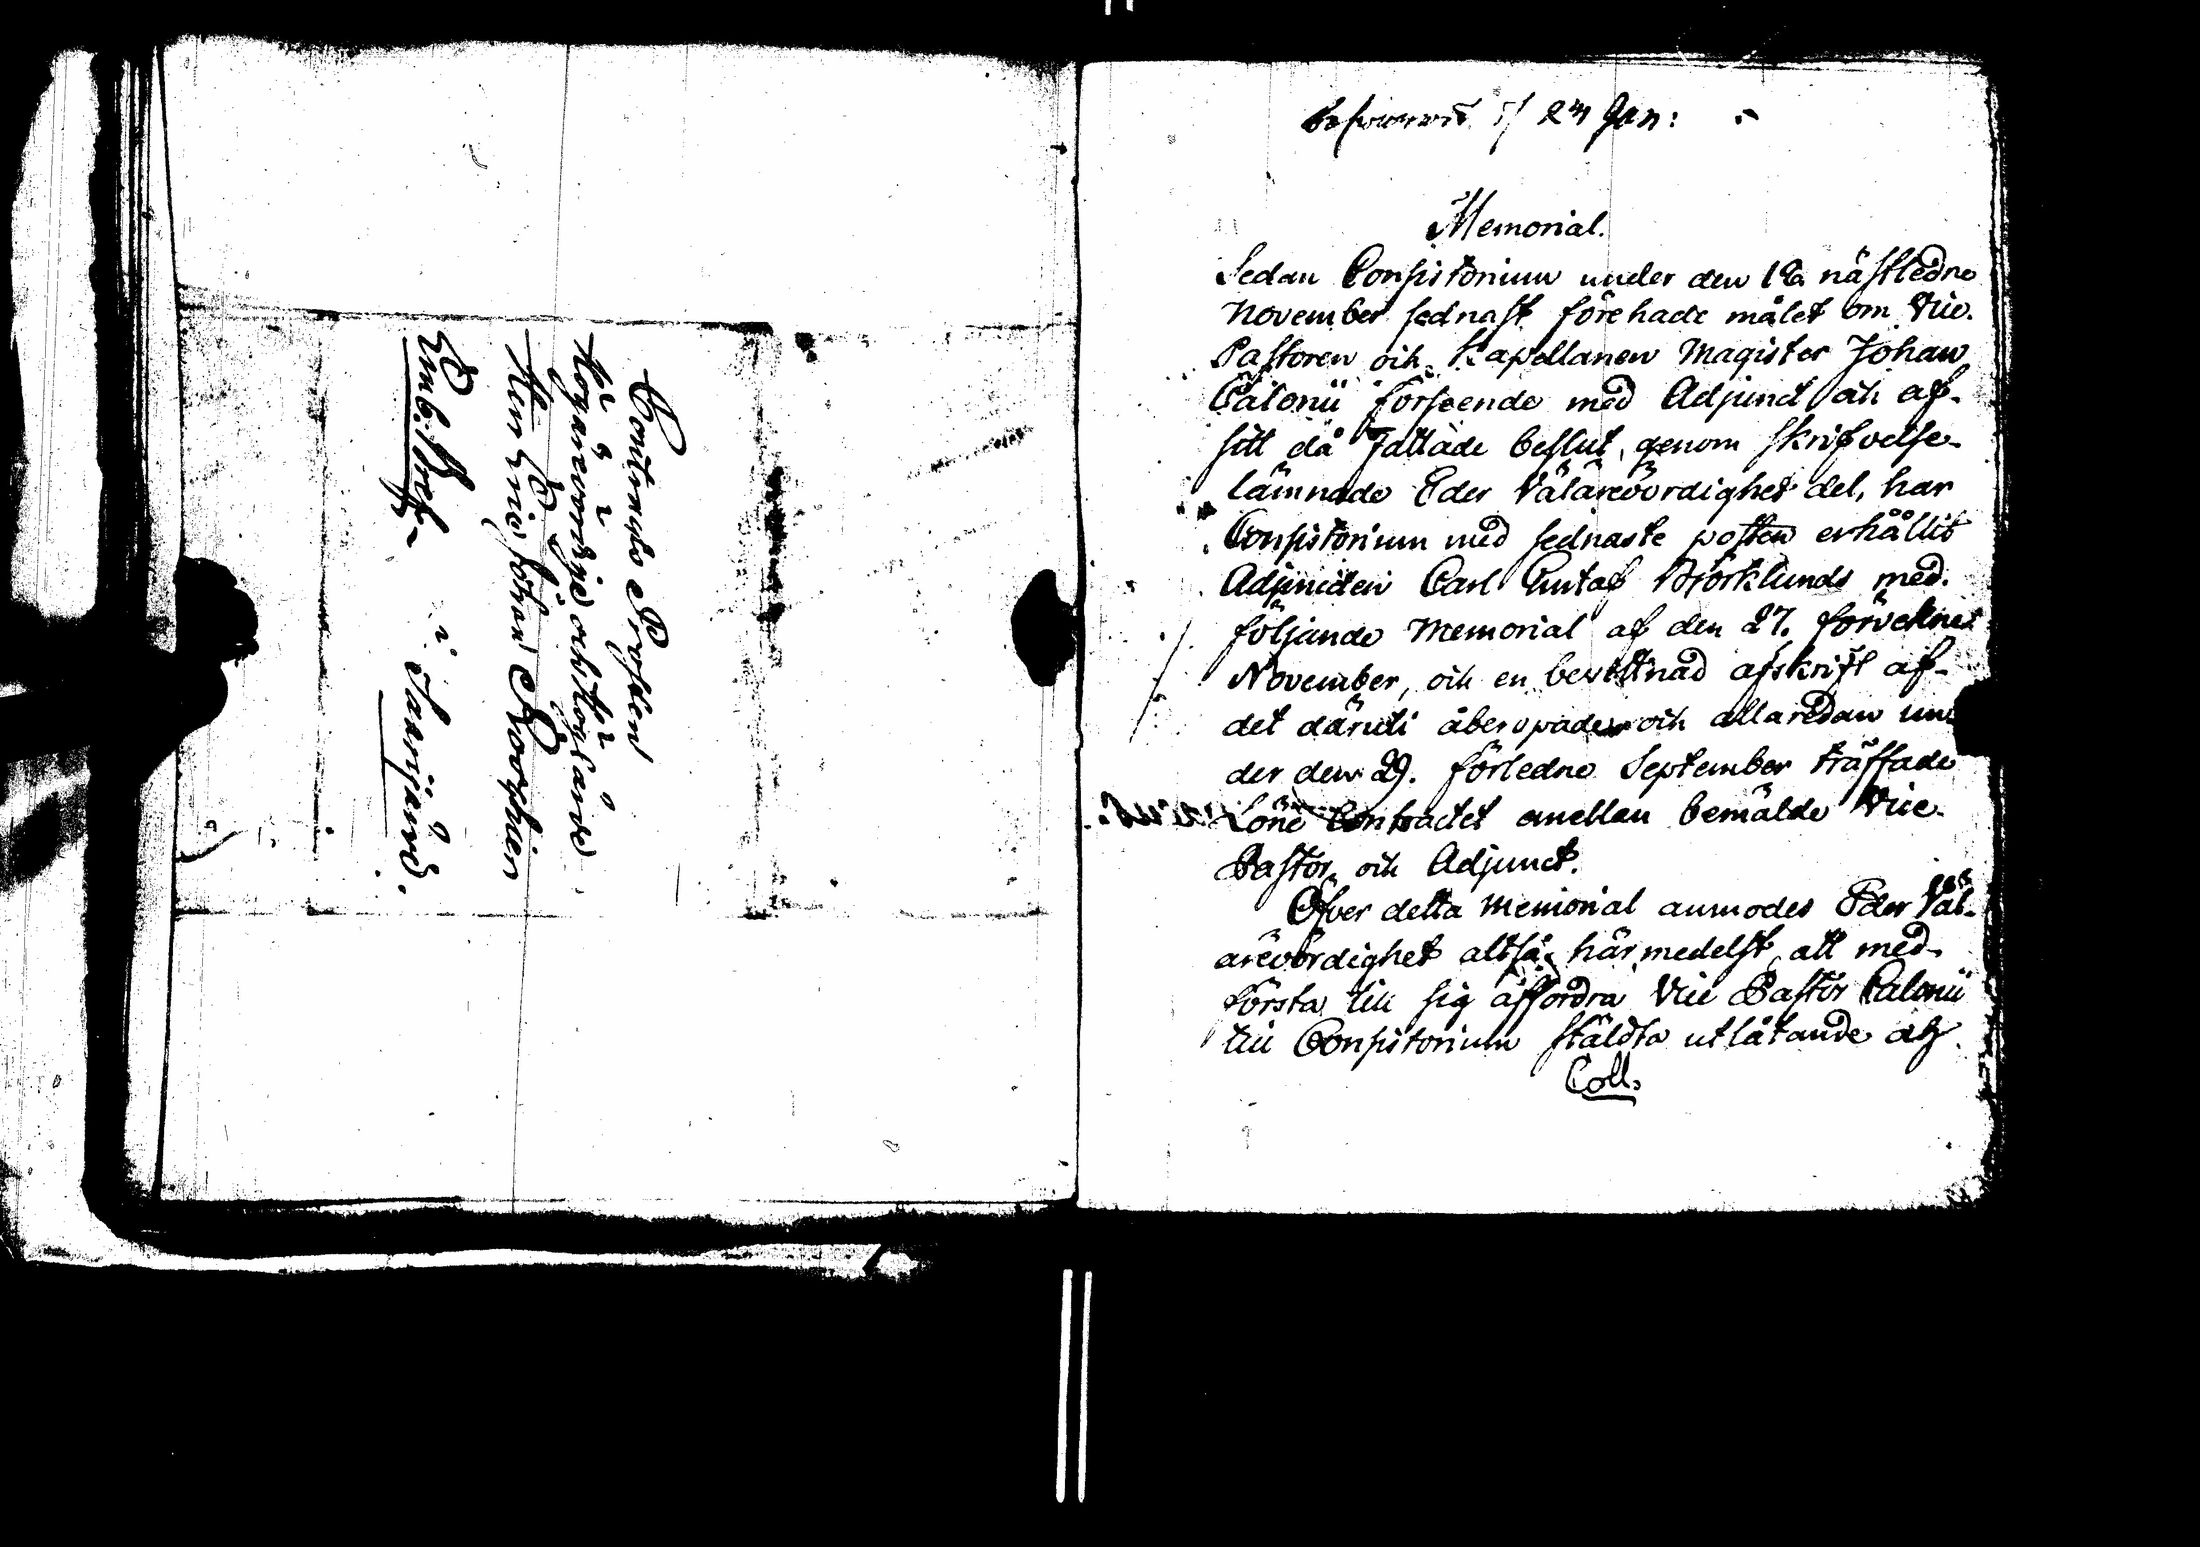 Contracts Prosten
Högärevördige och Höglärde
Herr Mag. Johan
Emb. Bref
i Saarijärvi.
24 Jan:
Memorial.
Sedan Consistorium under den 16 nästledne
November sednast förehade målet om Vice
Pastoren och Kapellanen Magister Johan
Calonii förseende med Adjunct och af
sitt då fattade beslut, genom skrifvelse
lämnade Eder Välärevördighet del, har
Consistorium med sednaste posten erhållit
Adjuncten Carl Gustaf Björklunds med
följande Memorial af den 27. förvekne
November, och en bevittnad afskrift af
det däruti åberopade och allaredan un
der den 29. förledne September träffade
Löne Contractet emellan bemälde Vice
Pastor och Adjunct.
Öfver detta Memorial anmodes Eder Väl-
ärevördighet altså härmedelst, att med
första till sig affordra Vice Pastor Calonii
till Consistorium stäldta utlåtande
Coll.